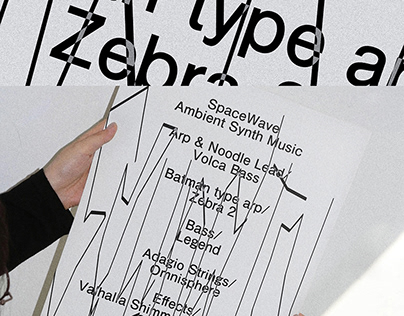 type arp/
zebra 2
SpaceWave
Ambient Synth Music
Arp & Noodle Lead/
Volca Bass
Batman type arp/
Zebra 2
Bass/
Legend
Adagio Strings/
Omnisphere
Effects/
Valhalla Shimm